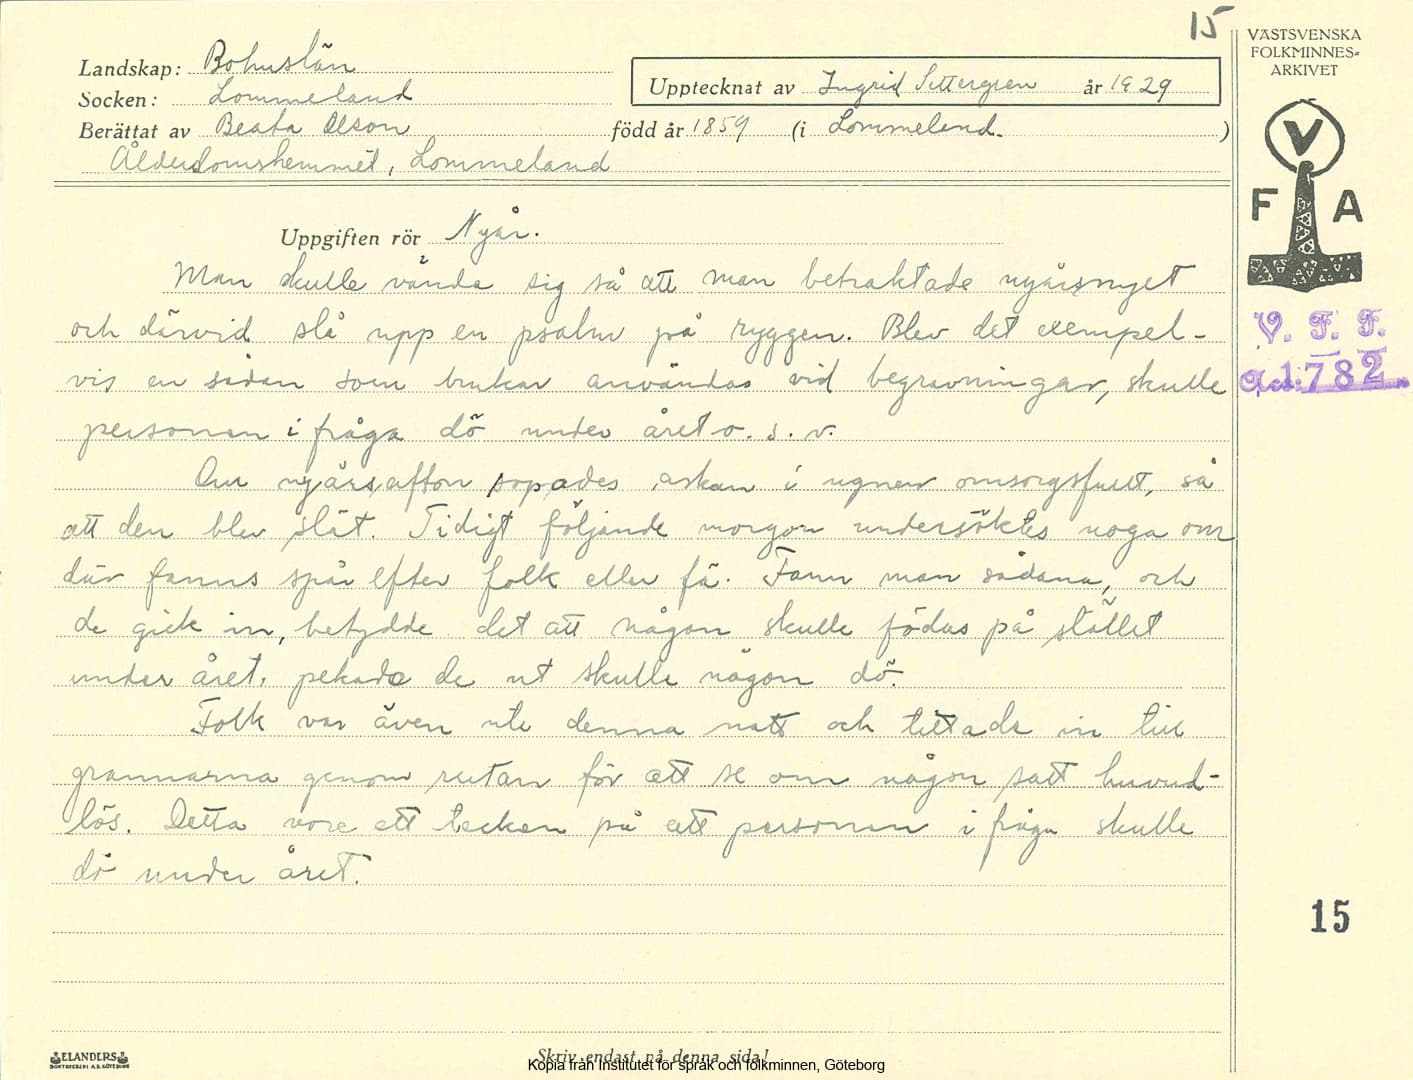 15
Landskap: Bohuslän
Socken: Lommeland
Upptecknat av Ingrid Settergren år 1929
Berättat av Beata Olson född år 1859 (i Lommeland.)
Ålderdomshemmet, Lommeland
VÄSTSVENSKA
FOLKMINNES=
ARKIVET
V
F A
V. F. F.
Acc: 1782
Uppgiften rör Nyår.
Man skulle vända sig så att man betraktade nyårsnyet
och därvid slå upp en psalm på ryggen. Blev det exempel-
vis en sådan som brukar användas vid begravningar, skulle
personen i fråga dö under året o. s. v.
Om nyårsafton sopades askan i ugnen omsorgsfullt, så
att den blev slät. Tidigt följande morgon undersöktes noga om
där fanns spår efter folk eller fä. Fann man sådana, och
de gick in, betydde det att någon skulle födas på stället
under året, pekade de ut skulle någon dö.
Folk var även ute denna natt och tittade in till
grannarna genom rutan för att se om någon satt huvud-
lös. Detta vore ett tecken på att personen i fråga skulle
dö under året.
15
ELANDERS
BOKTRYCKERI A.B. GÖTEBORG
Skriv endast på denna sida!
Kopia från Institutet för språk och folkminnen, Göteborg